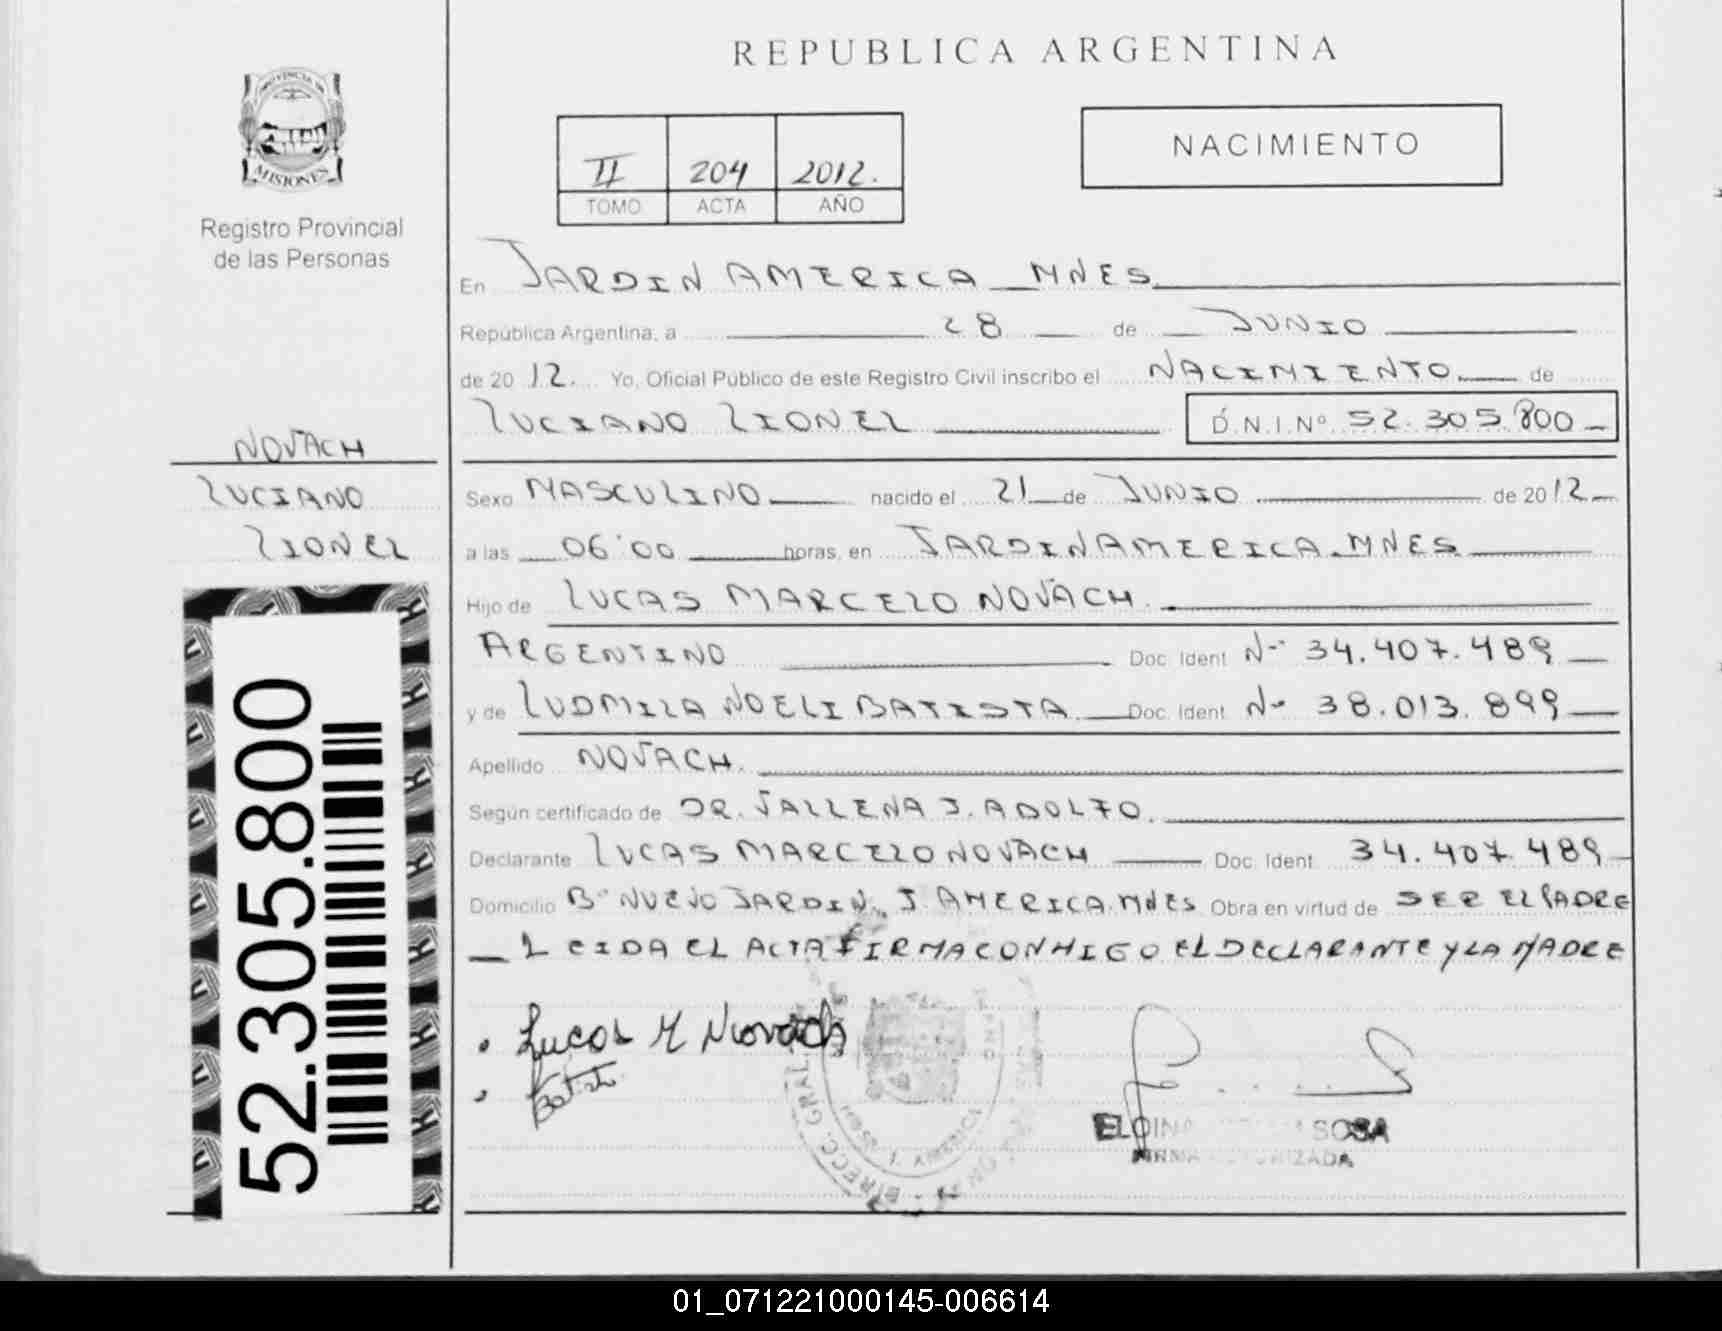 REPUBLICA ARGENTINA
PROVINCIA DE
MISIONES
Registro Provincial
de las Personas
II 204 2012.
TOMO ACTA AÑO
NACIMIENTO
En JARDIN AMERICA MNES
República Argentina, a 28 de JUNIO
de 20 12. Yo, Oficial Público de este Registro Civil inscribo el NACIMIENTO de
LUCIANO LIONEL D.N.I. Nº 52.305.800
NOVACH
LUCIANO
LIONEL
Sexo MASCULINO nacido el 21 de JUNIO de 2012
a las 06:00 horas, en JARDIN AMERICA MNES
Hijo de LUCAS MARCELO NOVACH
ARGENTINO Doc. Ident. Nº 34.407.489
y de LUDMILA NOELI BATISTA Doc. Ident. Nº 38.013.899
Apellido NOVACH.
Según certificado de DR. VALLENA J. ADOLFO.
Declarante LUCAS MARCELO NOVACH Doc. Ident. 34.407.489
Domicilio Bº NUEVO JARDIN, J. AMERICA. MNES Obra en virtud de SER EL PADRE
LEIDA EL ACTA FIRMA CONMIGO EL DECLARANTE Y LA MADRE
Lucas M Novach
Batista
DIRECC. GRAL.
J. AMERICA
SOSA
52.305.800
01_071221000145-006614